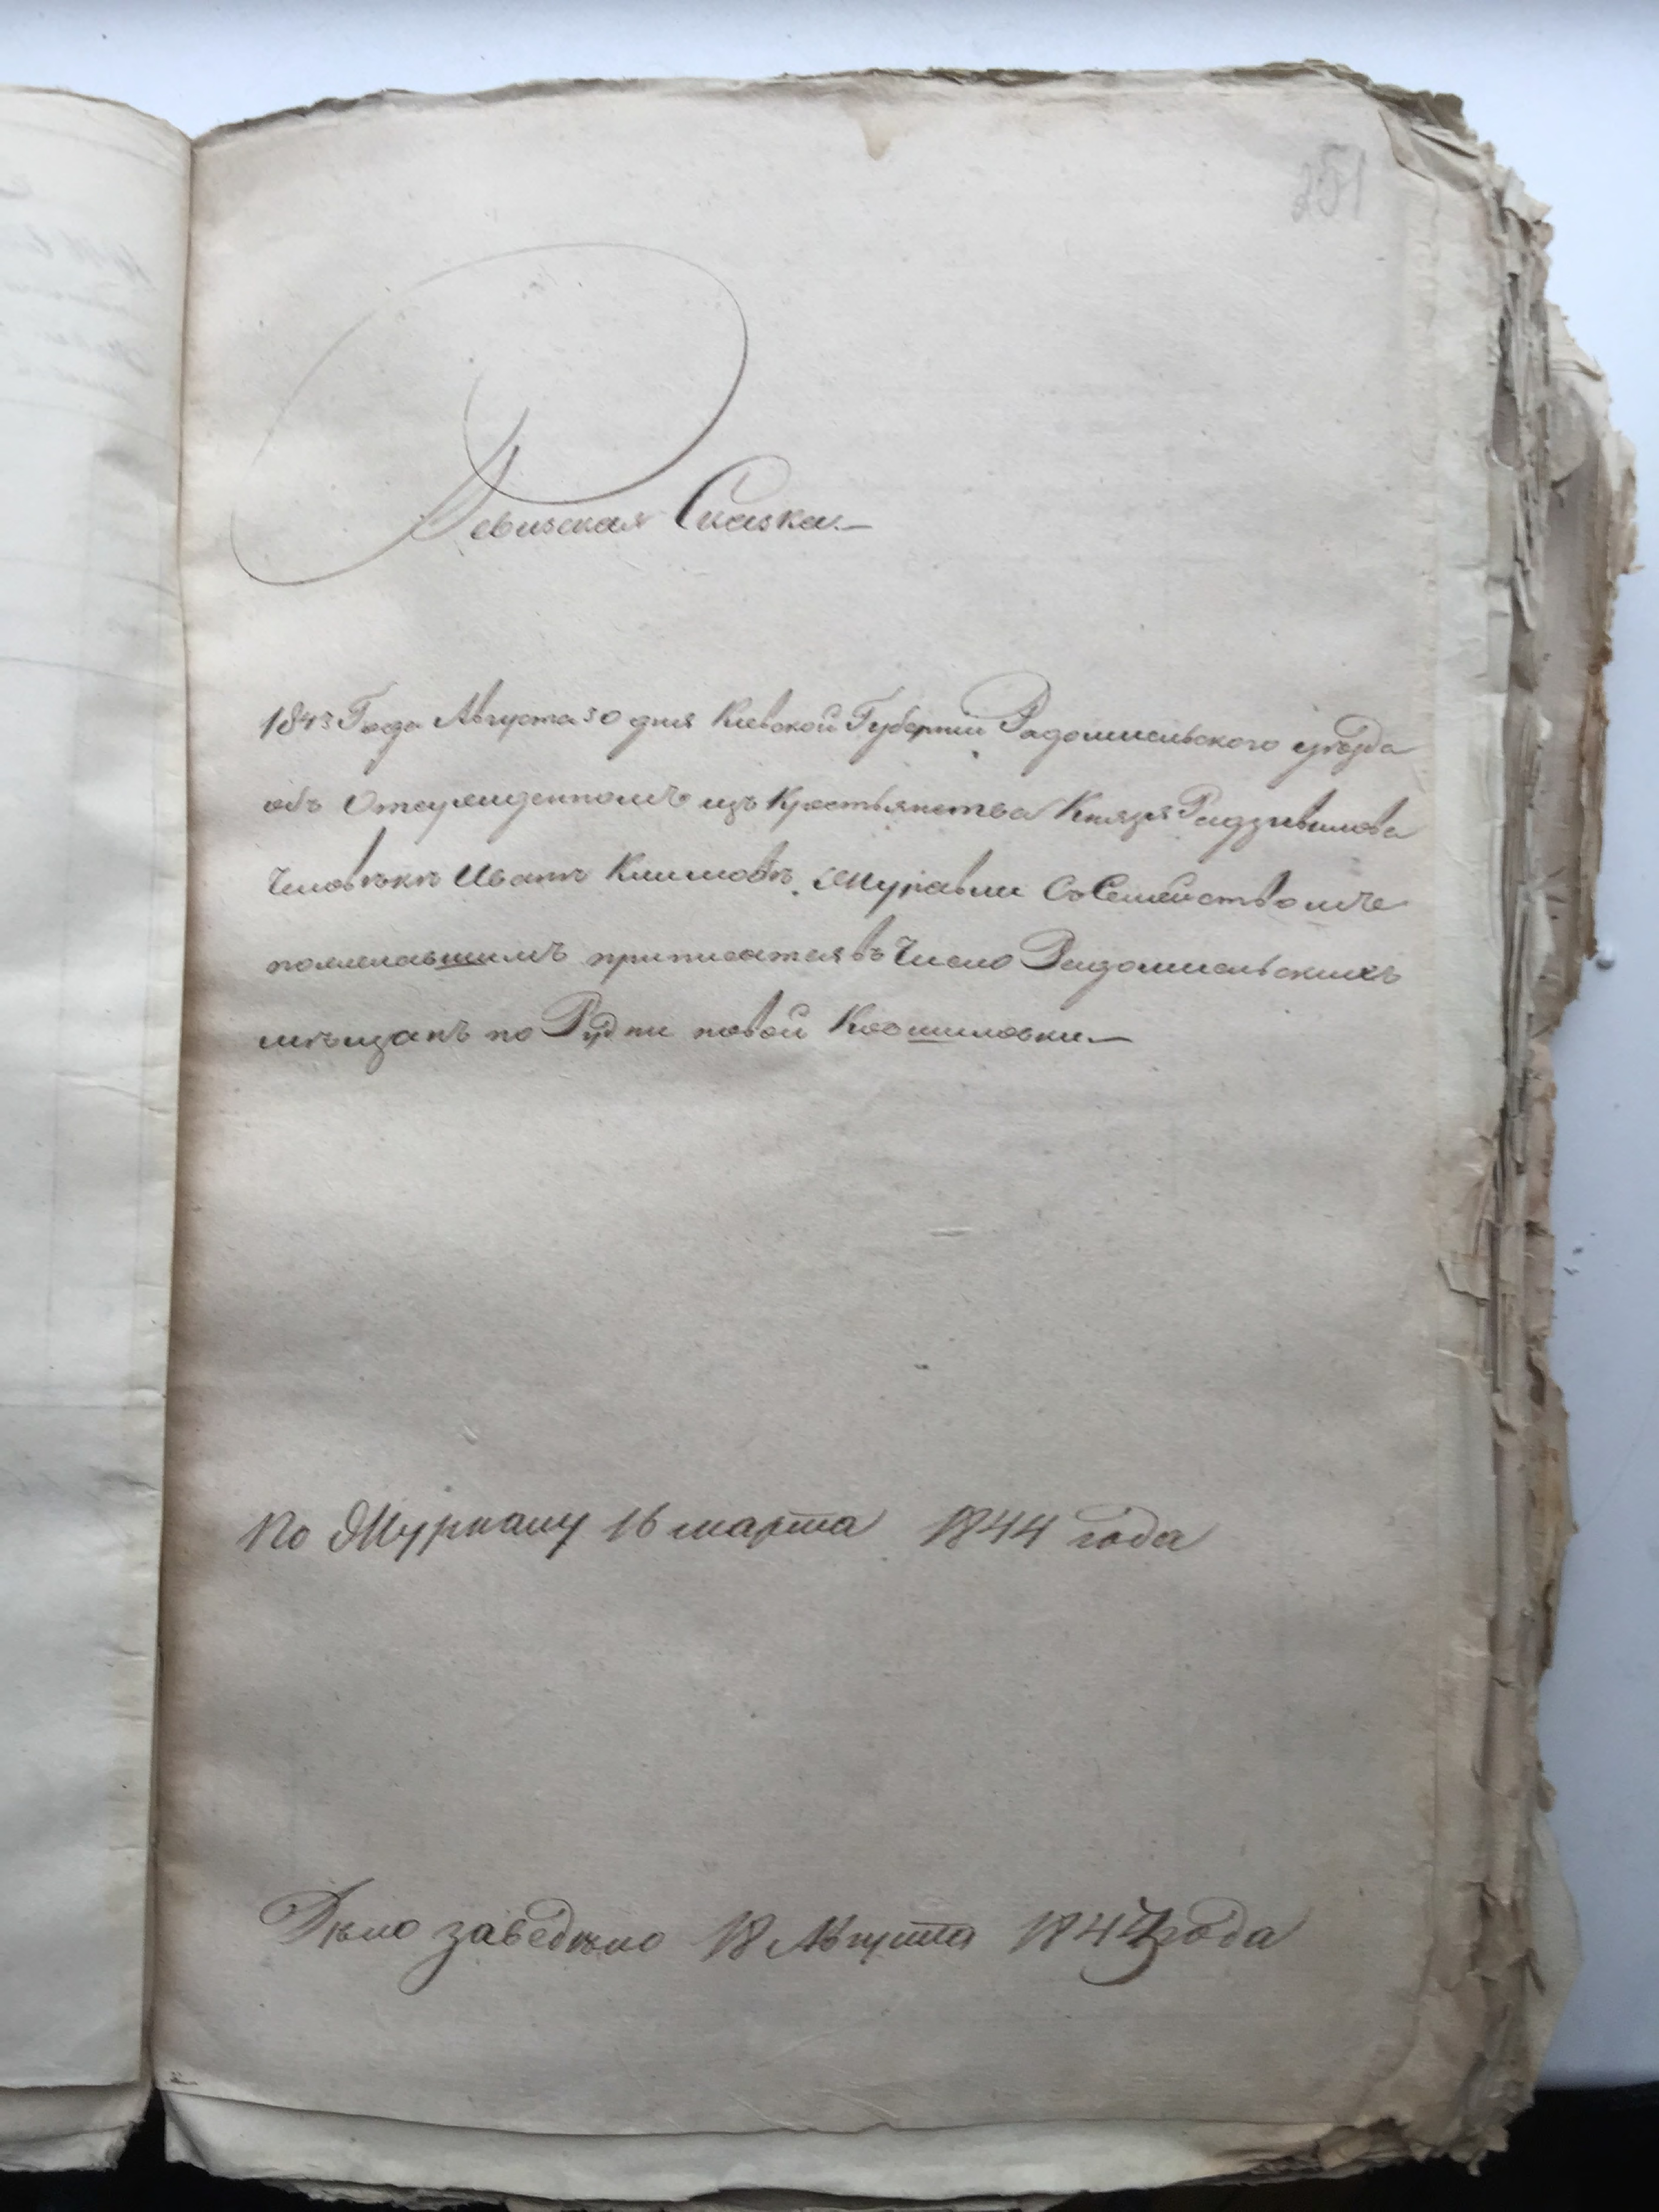 251
Ревизская Сказка.—
1843 Года Августа 30 дня Киевской Губернiи Радомисльского уѣзда
объ Отсужденномъ изъ Крестьянства Князя Радзивилова
Человѣкѣ Иванѣ Климовѣ Муравли Съ Семействомъ
пожелавшимъ приписатся въ Число Радомисльскихъ
мѣщанъ по Рудни новой
По Журналу 16 марта 1844 года
Дѣло заведѣно 18 Августа 1843 года